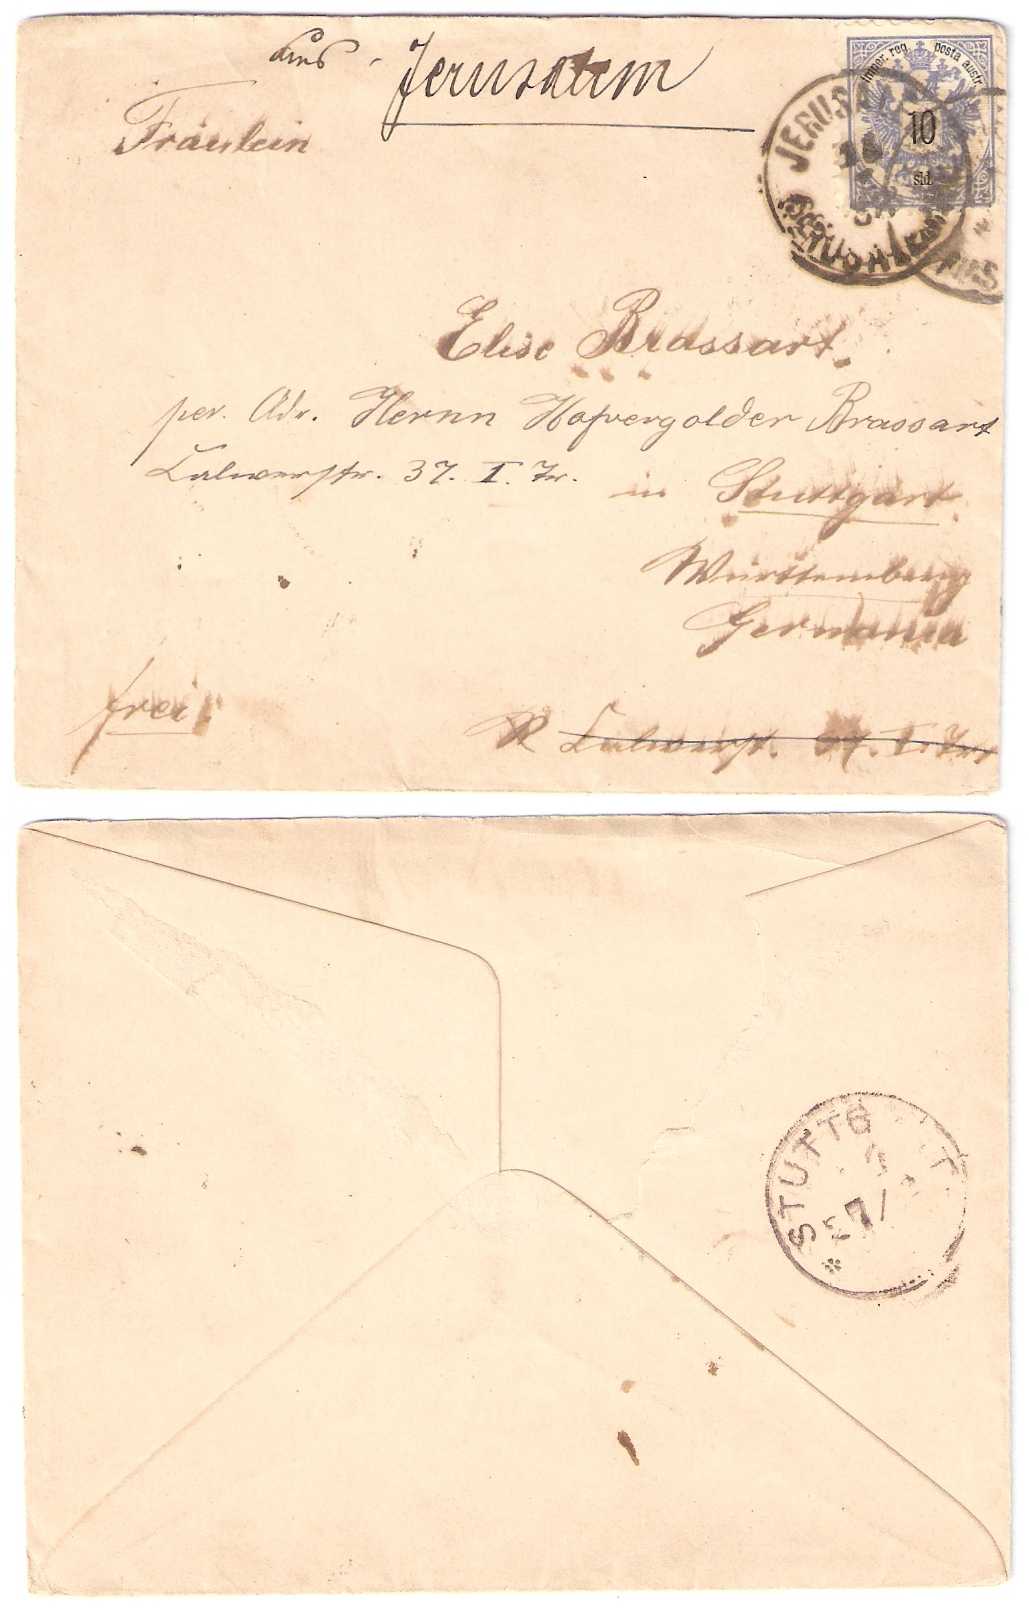 aus Jerusalem
Fräulein
Imper. reg. posta austr.
10
sld
JERUSALEM
Elise Brassart.
per. Adr. Herrn Hofvergolder Brassart
Calwerstr. 37. I. Tr.
in Stuttgart.
Württemberg
Germania
frei!
Calwerst. 37. I. Tr.
STUTTGART